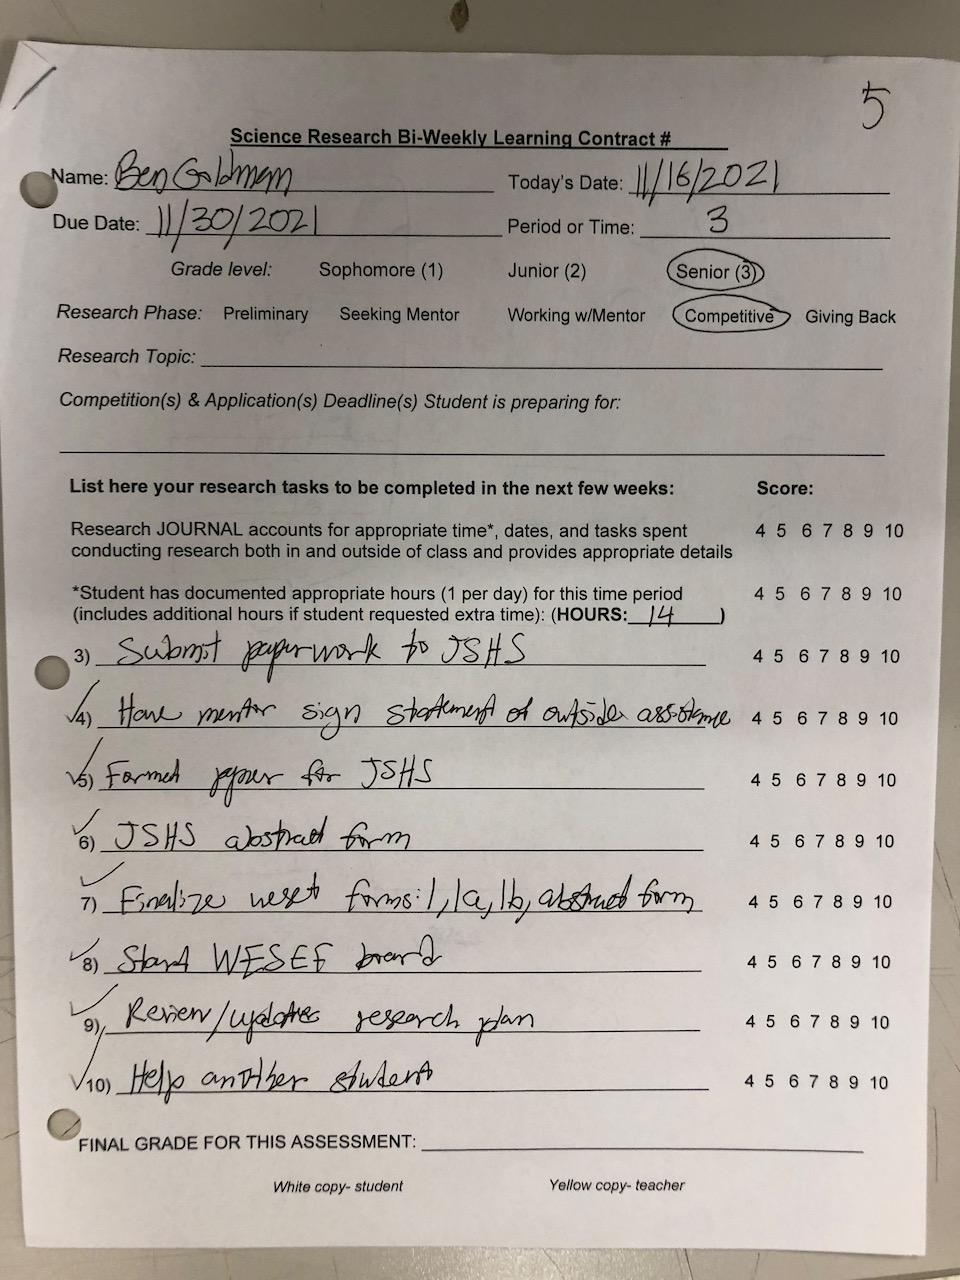 5
Science Research Bi-Weekly Learning Contract #
Name: Ben Goldman Today's Date: 11/16/2021
Due Date: 11/30/2021 Period or Time: 3
Grade level: Sophomore (1) Junior (2) Senior (3)
Research Phase: Preliminary Seeking Mentor Working w/Mentor Competitive Giving Back
Research Topic:
Competition(s) & Application(s) Deadline(s) Student is preparing for:
List here your research tasks to be completed in the next few weeks: Score:
Research JOURNAL accounts for appropriate time*, dates, and tasks spent 4 5 6 7 8 9 10
conducting research both in and outside of class and provides appropriate details
*Student has documented appropriate hours (1 per day) for this time period 4 5 6 7 8 9 10
(includes additional hours if student requested extra time): (HOURS: 14 )
3) Submit paperwork to JSHS 4 5 6 7 8 9 10
4) Have mentor sign statement of outside assistance 4 5 6 7 8 9 10
5) Format paper for JSHS 4 5 6 7 8 9 10
6) JSHS abstract form 4 5 6 7 8 9 10
7) Finalize forms: 1, 1a, 1b, abstract form 4 5 6 7 8 9 10
8) Start WESEF board 4 5 6 7 8 9 10
9) Review/update research plan 4 5 6 7 8 9 10
10) Help another student 4 5 6 7 8 9 10
FINAL GRADE FOR THIS ASSESSMENT:
White copy- student Yellow copy- teacher